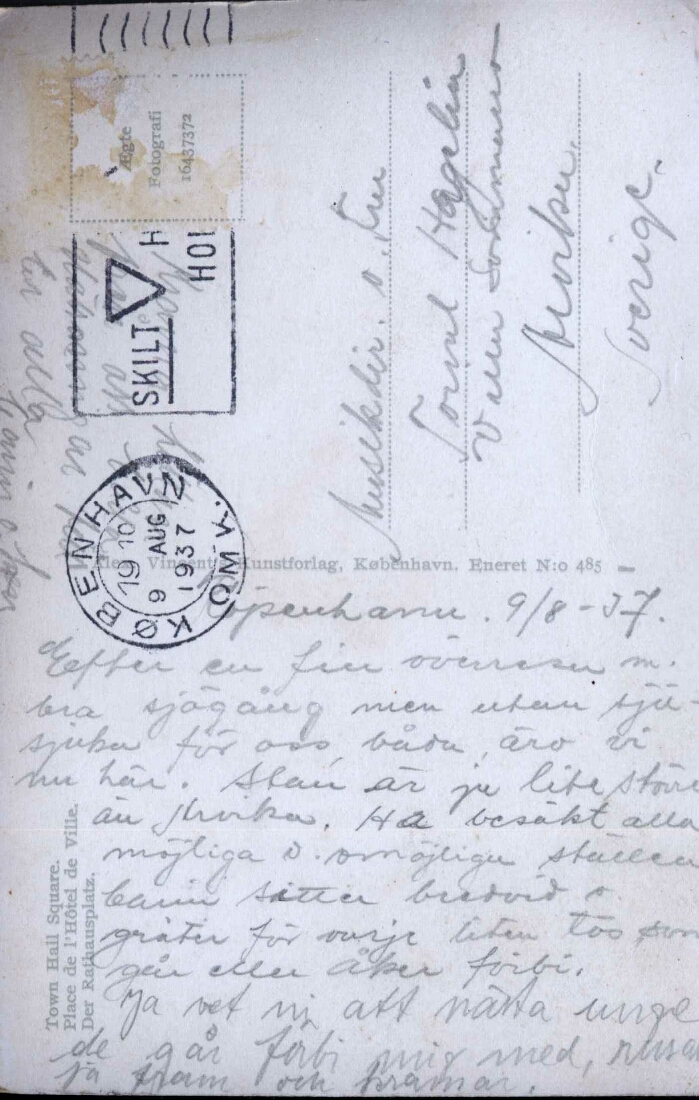 Ægte
Fotografi
16437372
SKILT
H
HOL
KØBENHAVN K. OMK.
19 10
9 AUG
1937
Musikdir. o. Fru
Torild Hagelin
Villa Sommarro
Arvika.
Sverige.
Alex. Vincent's Kunstforlag, København. Eneret N:o 485
Town Hall Square.
Place de l'Hôtel de ville.
Der Rathausplatz.
Köpenhamn. 9/8-37.
Efter en fin överresa m.
bra sjögång men utan sjö
sjuka för oss båda, äro vi
nu här. Stan är ju lite större
än Arvika. Ha besökt alla
möjliga o. omöjliga ställen
sitter bredvid o
gråter för varje liten tös som
går eller åker förbi.
Ja vet ni att nästa unge
de går förbi mig med, rusar
ja fram och kramar.
att
er alla